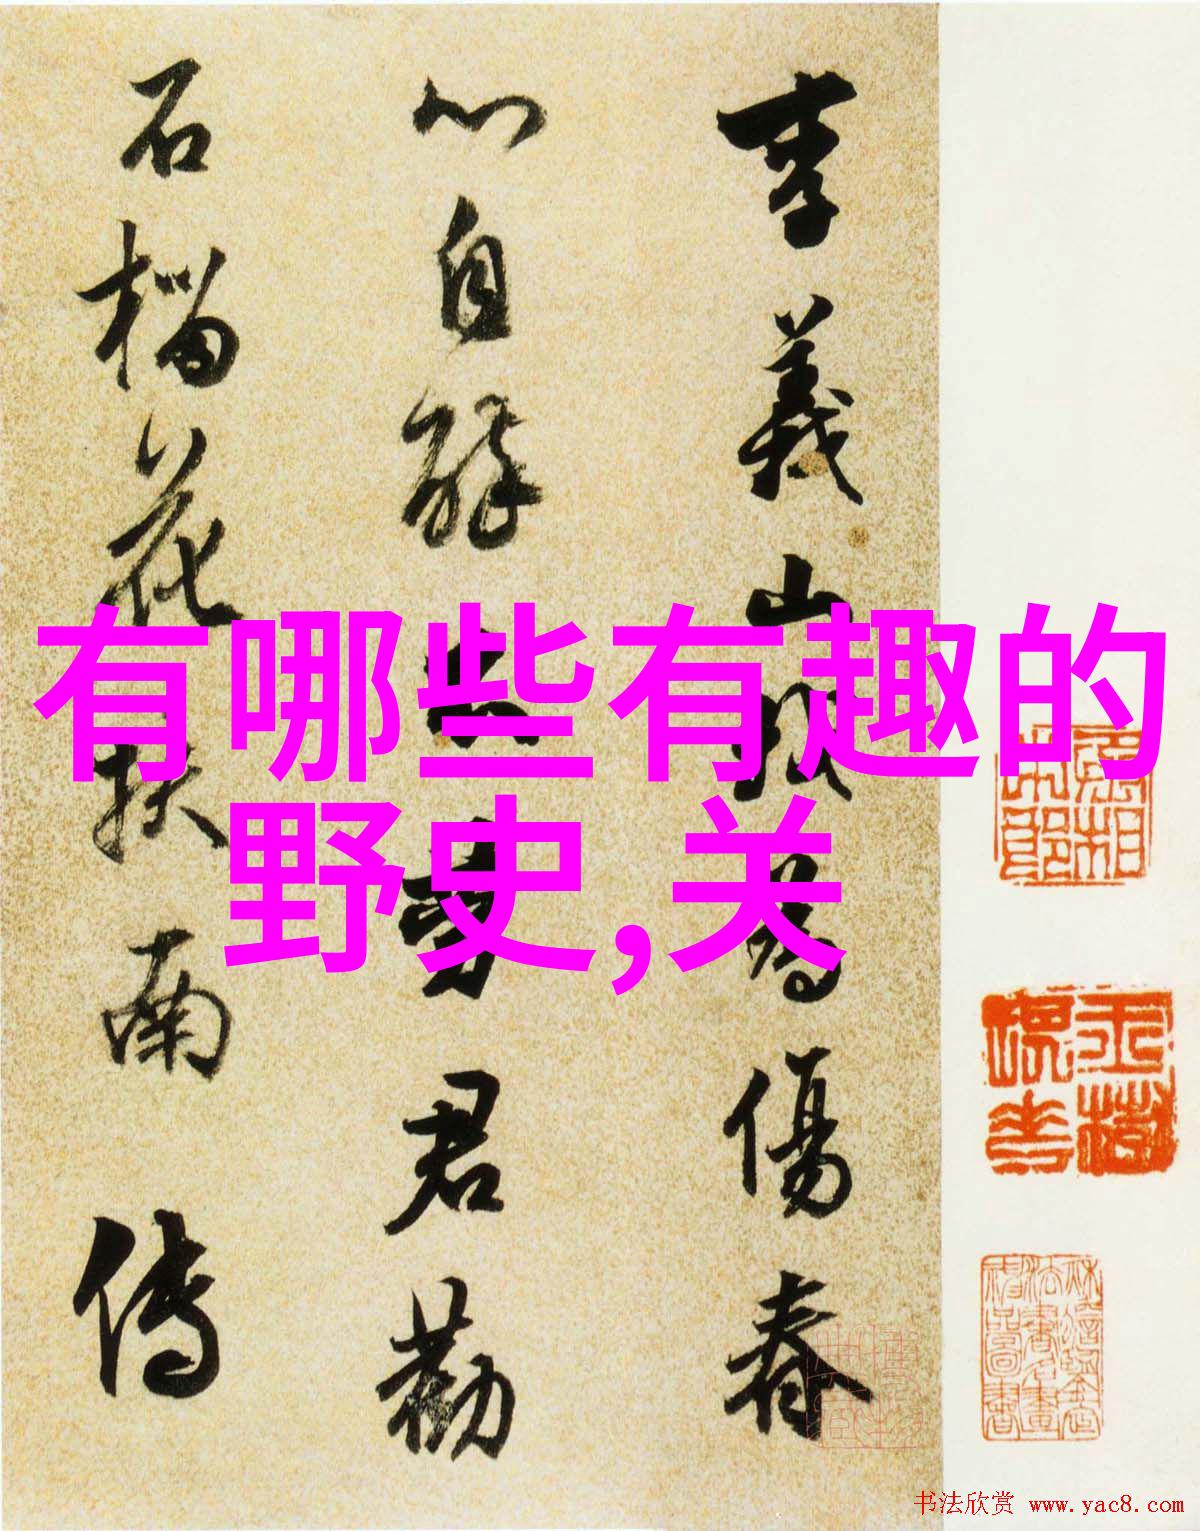 有哪些有趣的
野史,关
李義山我為傷春
心自醉不勞君勸
石榴花扶南傳
书法欣赏 www.yac8.com